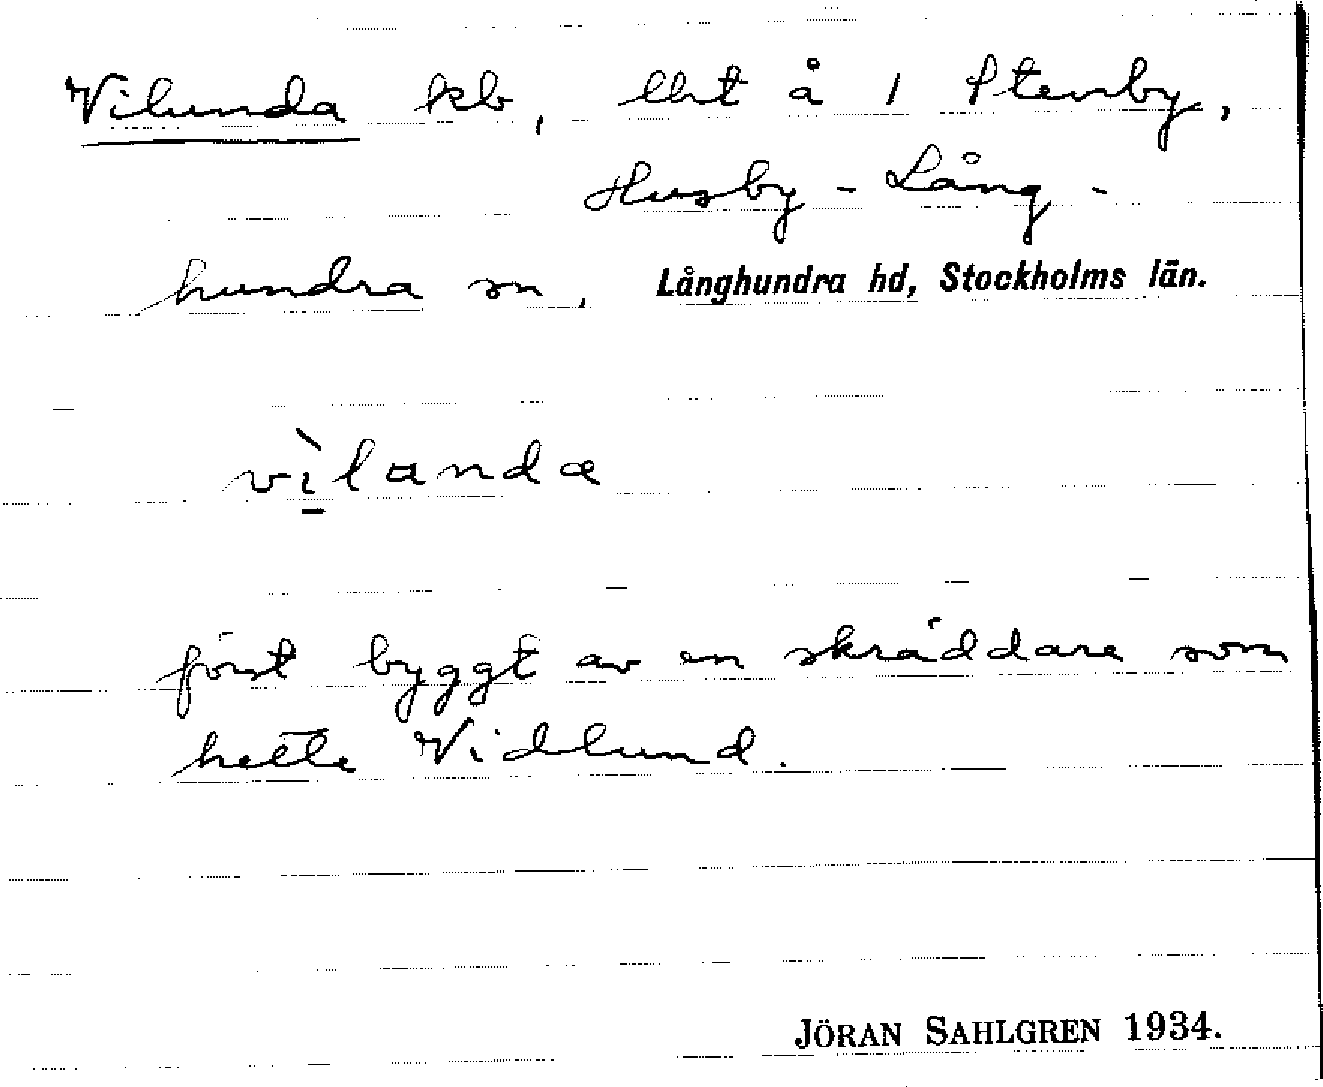 Vilunda kb, lht å 1 Stenby,
Husby-Lång-
hundra sn, Långhundra hd, Stockholms län.
vìlanda
först byggt av en skräddare som
hette Vidlund.
JÖRAN SAHLGREN 1934.